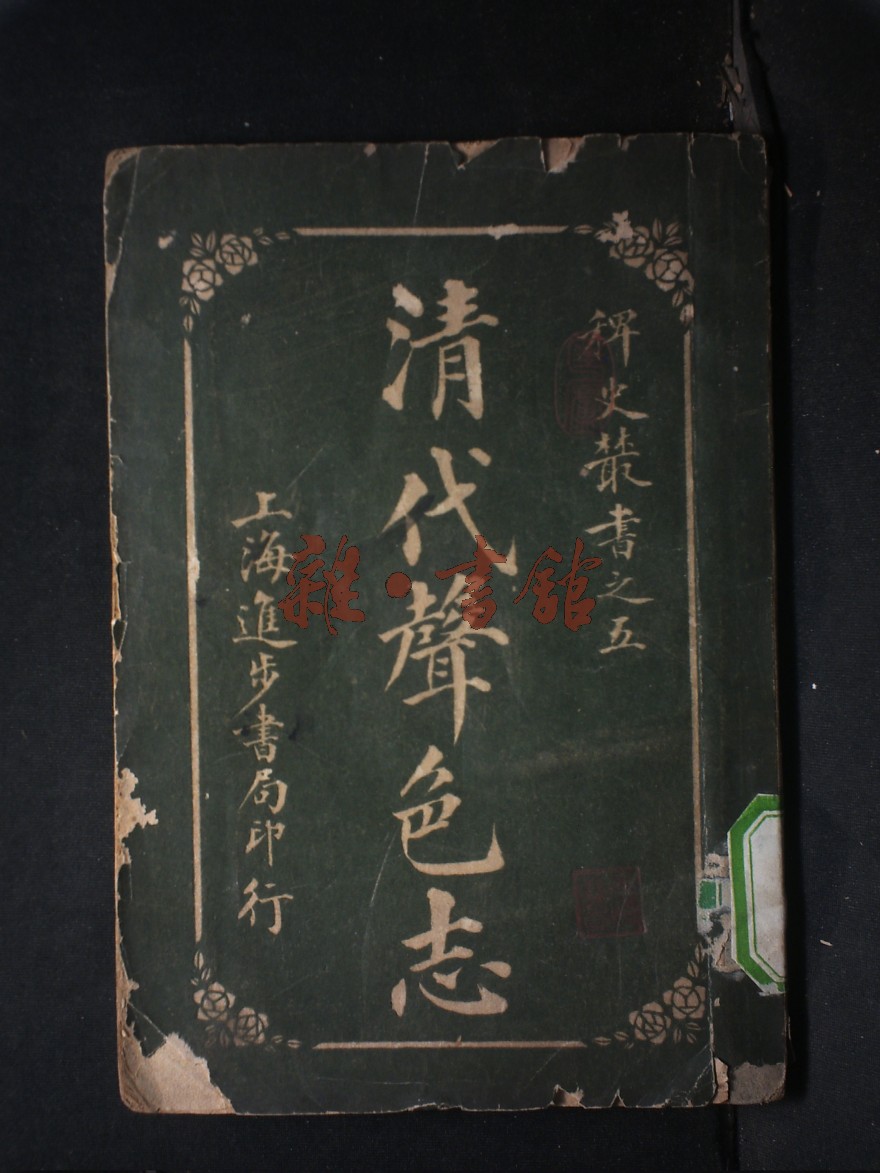 稗史叢書之五
清代聲色志
上海進步書局印行
雜·書館